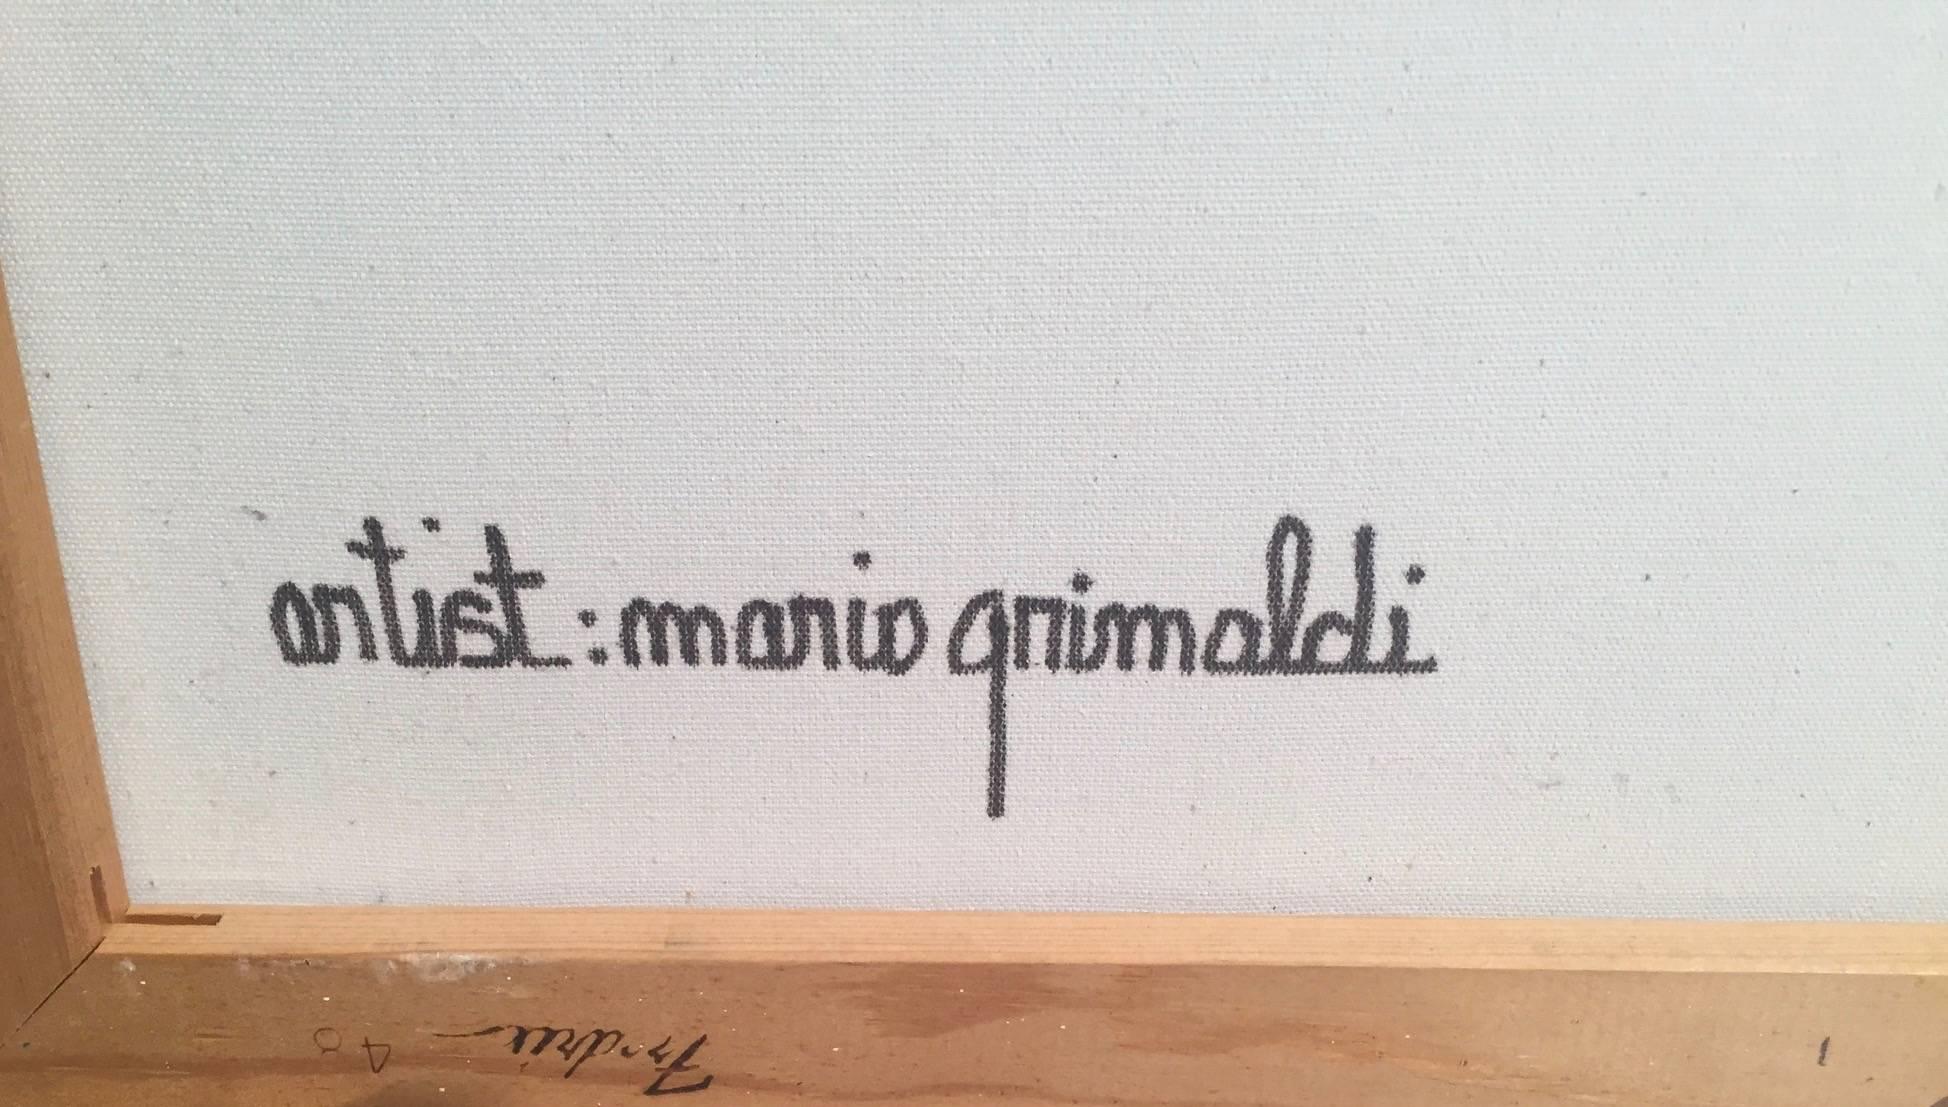 artist : mario grimaldi
40
1